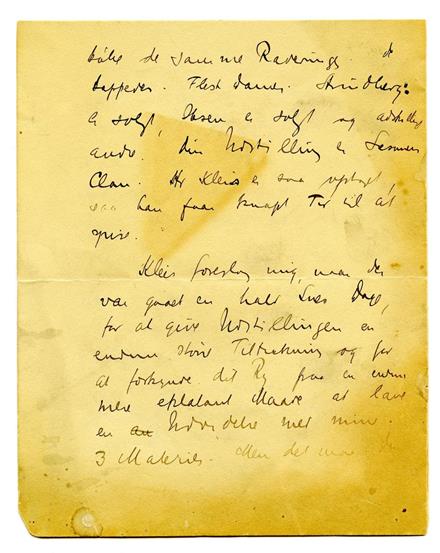 købe de samme Raderinger. de
Flest Damer. Strindberg
er solgt, Ibsen er solgt og adskillig
andre. Min Udstilling er
Clou. Hr Kleis er saa optaget,
saa han faar knapt Tid til at
spise.
Kleis foreslog mig, naar der
var gaaet en halv Snes Dage,
for at give Udstillingen en
endnu større Tiltrækning og for
at forkynde dit Ry paa en endnu
mere eplatant Maade at lave
en Udvidelse med mine
3 Malerier. Men det maa